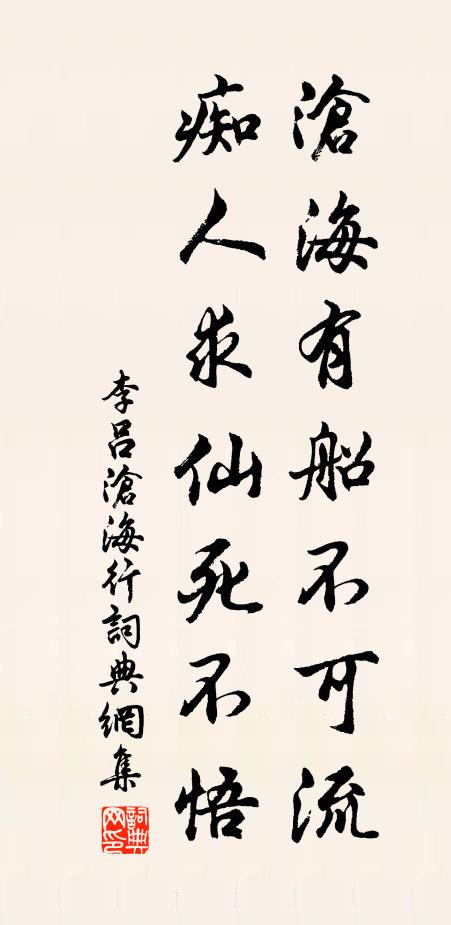 滄海有船不可流
痴人求仙死不悟
李呂滄海行詞典網集
詞典網印